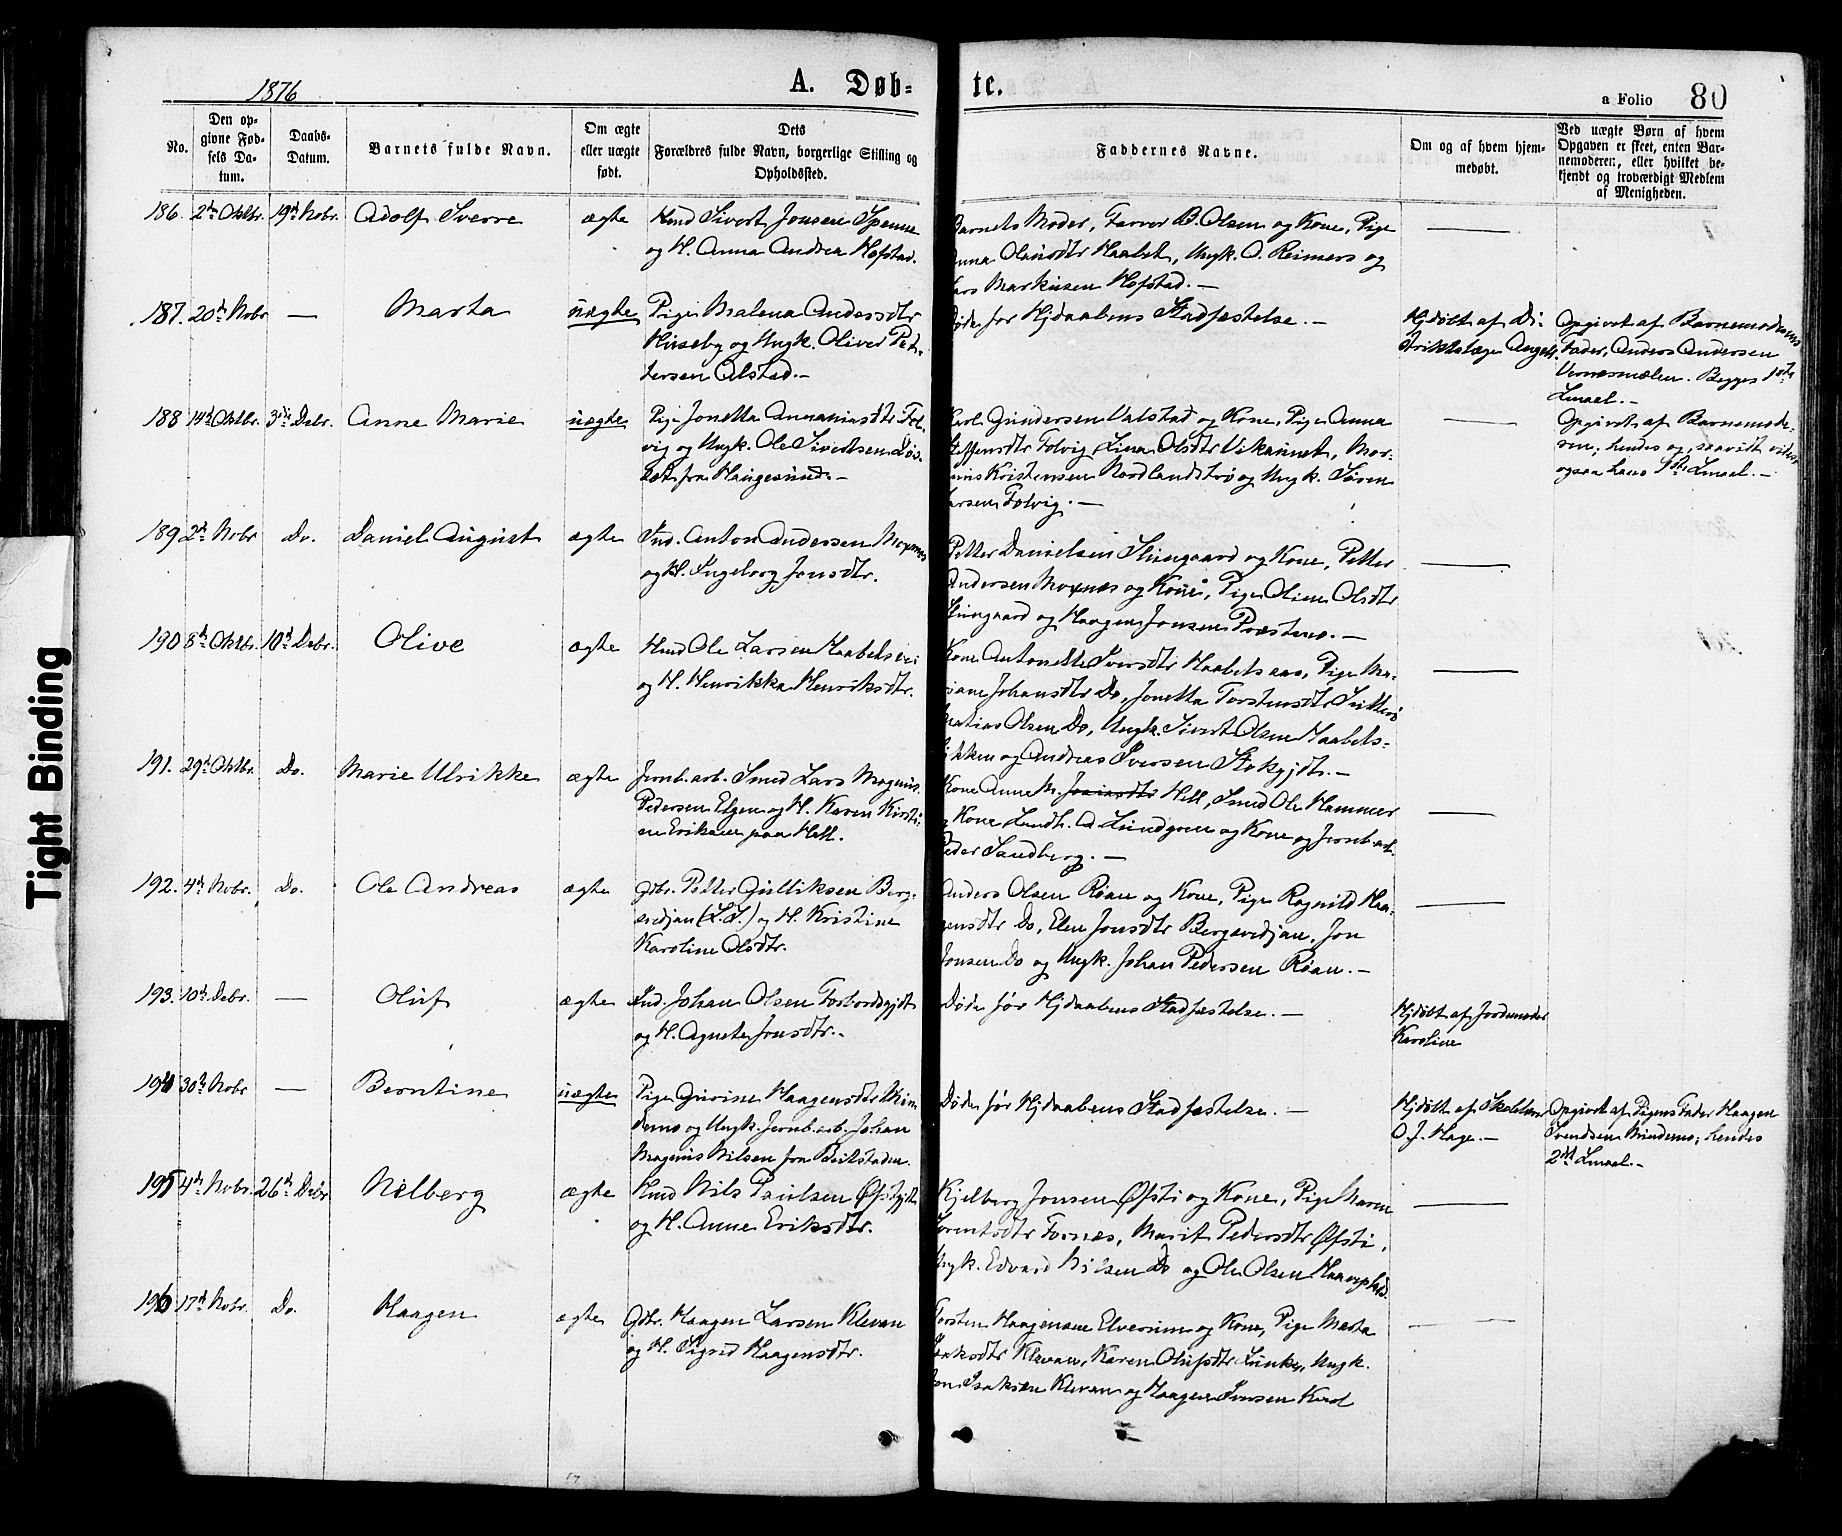 1876
A. Døb-
te.
a Folio 80
No.
Den op-
givne Fød-
sels Da-
tum.
Daabs-
Datum.
Barnets fulde Navn.
Om ægte
eller uægte
født.
Dets
Forældres fulde Navn, borgerlige Stilling og
Opholdssted.
Faddernes Navne.
Om og af hvem hjem-
medøbt.
Ved uægte Børn af hvem
Opgaven er skeet, enten Bar-
nemoderen, eller hvilket be-
kjendt og troværdigt Medlem
af Menigheden.
186. 2den Oktbr. 19de Nobr. Adolf Sverre ægte Hmd Sivert Jonsen Spenne
og H. Anna Andrea Hofstad.
Barnets Moder, Farver B. Olsen og Kone, Pige
Anna Olausdtr Haabet, Ungk. O. Reimers og
Lars Markusen Hofstad. —
187. 20de Nobr — Marta uægte Pige Malena Andersdtr
og Ungk. Oliver Pet-
tersen Alstad. —
Døde før Hjdaabens Stadfæstelse. —
Hjdøbt af Di-
striktslæge Angell.
Opgivet af Barnemoderens
Fader, Anders Andersen
Vernesmælen. Begges 1ste
Lmaal. —
188 14de Oktbr. 3die Debr. Anne Marie uægte Pige Jonetta Annaniasdtr Fol-
vig og Ungk. Ole Sivertsen
fra Haugesund. —
Karl Gundersen Valstad og Kone, Pige Anna
Steffensdtr Folvig, Lina Olsdtr Vikannet, Mor-
Kristensen Nordlandstrø og Ungk. Søren
Larsen Folvig. —
Opgivet af Barnemode-
ren; hendes og, saavidt vides
ogsaa hans 1ste Lmaal. —
189 2den Nobr Do. Daniel August ægte Ind. Anton Andersen Moxnes
og H. Ingeborg Jonsdtr.
Petter Danielsen Stingaard og Kone, Petter
Andersen Moxnes og Kone, Pige Oline Olsdtr
Stingaard og Haagen Jonsen Præstmo. —
190 8de Oktbr. 10de Debr. Olive ægte Hmd Ole Larsen
og H. Henrikka Henriksdtr.
Kone Antonette Iversdtr Haabetsaas, Pige Ma-
riane Johansdtr Do, Jonetta Torstensdtr
Matias Olsen Do, Ungk. Sivert Olsen Haabets-
og Andreas Iversen Stokgjdt. —
191. 29de Oktbr. Do. Marie Ulrikke ægte Jernb. arb. Smed Lars Magnus
Pedersen Elgen og H. Karen Kirsti-
ne Eriksen paa Hell.
Kone Anne M. Hell, Smed Ole Hammer
og Kone, Landh. A Lundgren og Kone og Jernb. arb.
Peder Sandberg. —
192. 4de Nobr. Do. Ole Andreas ægte Gdbr. Petter Gulliksen Berg-
svedjan (L.S.) og H. Kristine
Karoline Olsdtr.
Anders Olsen Røan og Kone, Pige Ragnild Haa-
gensdtr Do, Elen Jonsdtr Bergsvedjan, Jon
Jonsen Do og Ungk. Johan Pedersen Røan. —
193. 10de Debr. — Oluf ægte Ind. Johan Olsen Forbordsgjdt
og H. Agnete Jonsdtr. —
Døde før Hjdaabens Stadfæstelse. —
Hjdøbt af Jordmoder
Karoline
194 30te Nobr — Berntine uægte Pige Gurine Haagensdtr Min-
demo og Ungk. Jernb. arb. Johan
Magnus Nilsen fra Beitstaden.
Døde før Hjdaabens Stadfæstelse. —
Hjdøbt af Skolelærer
O. J. Hage. —
Opgivet af Pigens Fader Haagen
Svendsen Mindemo; hendes
2det Lmaal. —
195 4de Nobr. 26de Debr Nelberg ægte Hmd Nils Paulsen Øfstigjdt
og H. Anne Eriksdtr.
Kjelberg Jonsen Øfsti og Kone, Pige Maren
Lorentsdtr Fornes, Marit Pedersdtr Øfsti,
Ungk. Edvard Nilsen Do og Ole Olsen
196 17de Nobr. Do. Haagen ægte Gdbr. Haagen Larsen Klevan
og H. Sigrid Haagensdtr.
Torsten Haagensen Elverum og Kone, Pige Marta
Isaksdtr Klevan, Karen Olufsdtr Ungk.
Jon Isaksen Klevan og Haagen Iversen
Tight Binding